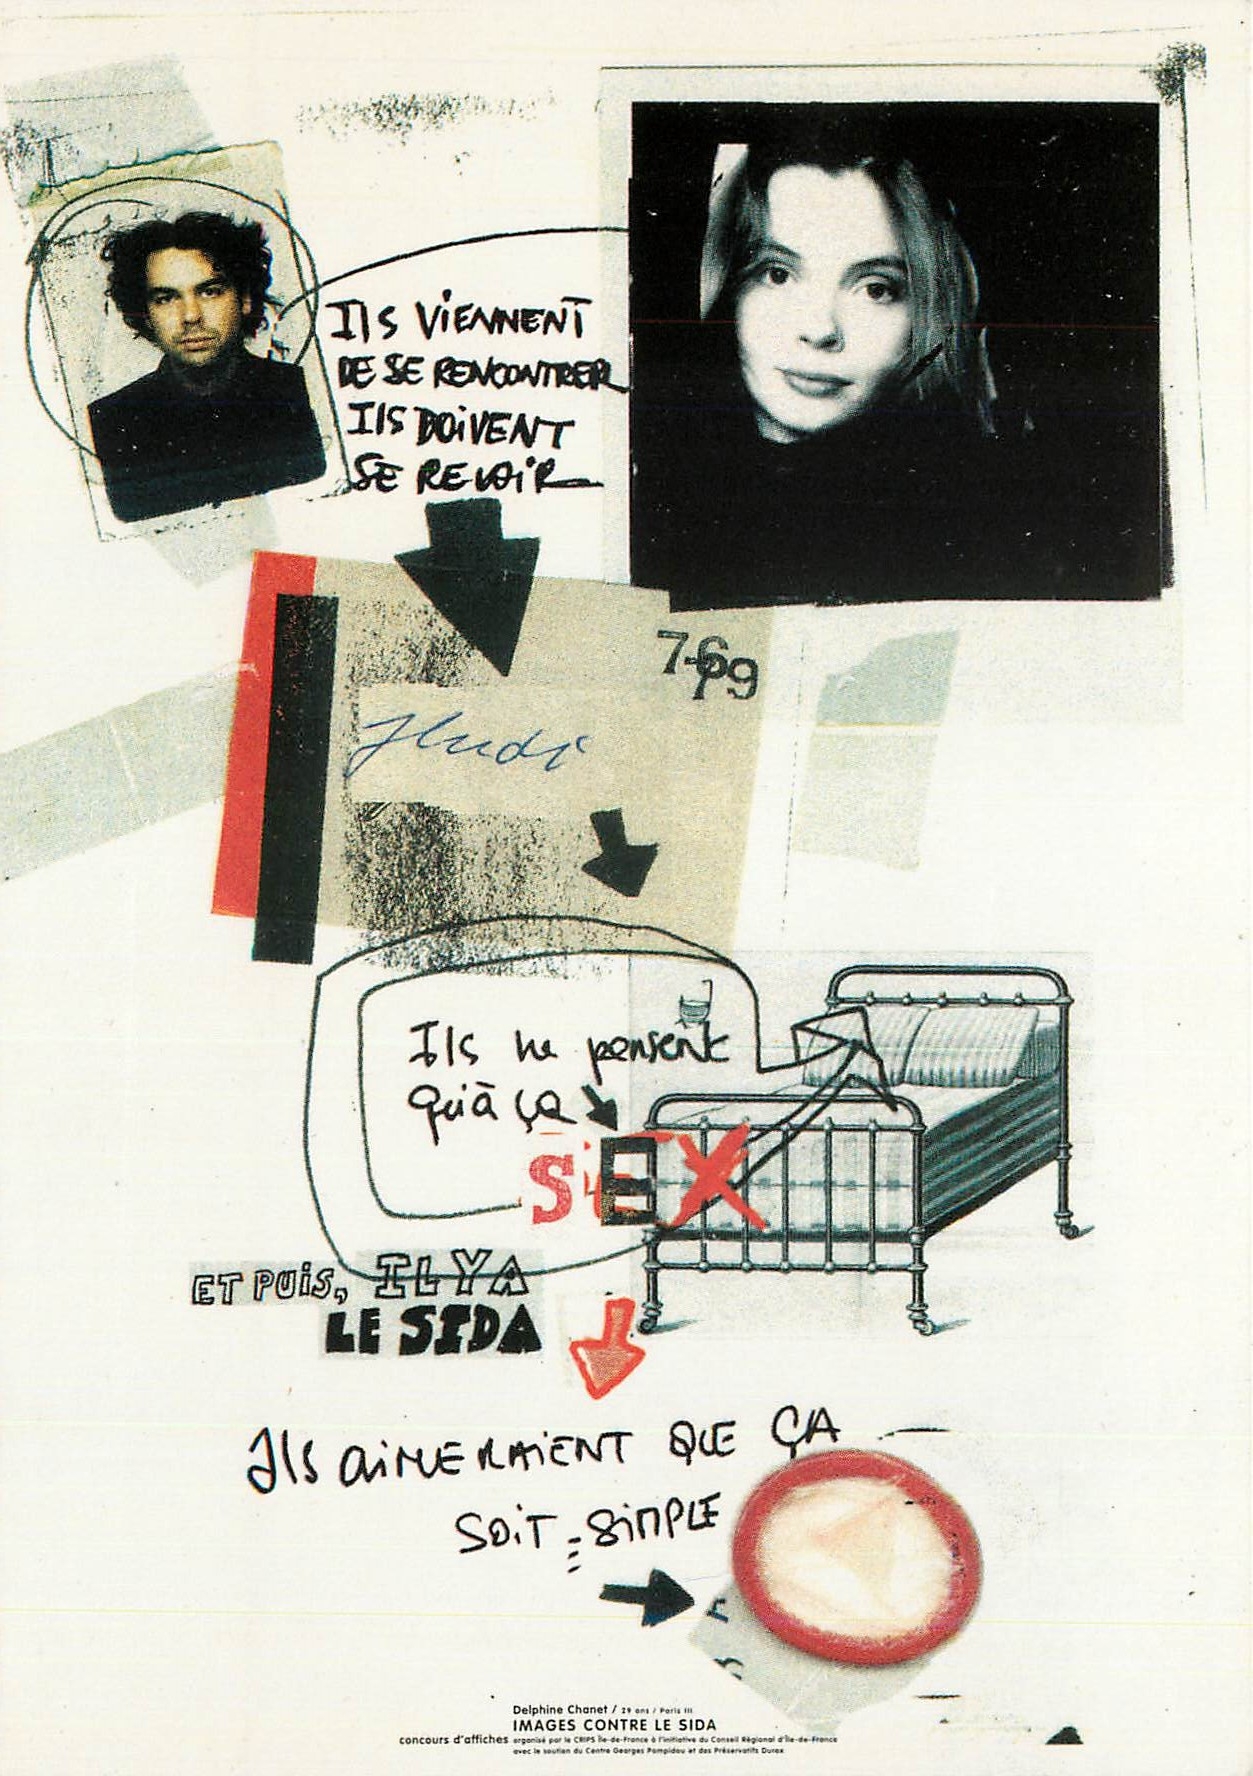 Ils VIENNENT
DE SE RENCONTRER
Ils DOIVENT
SE REVOIR
Jeudi
Ils ne pensent
qu'à ça
SEX
ET PUIS, IL Y A
LE SIDA
Ils AIMERAIENT QUE ÇA
SOIT SIMPLE
Delphine Chanet / 29 ans / Paris III
IMAGES CONTRE LE SIDA
concours d'affiches organisé par le CRIPS Île-de-France à l'initiative du Conseil Régional d'Île-de-France
avec le soutien du Centre Georges Pompidou et des Préservatifs Durex